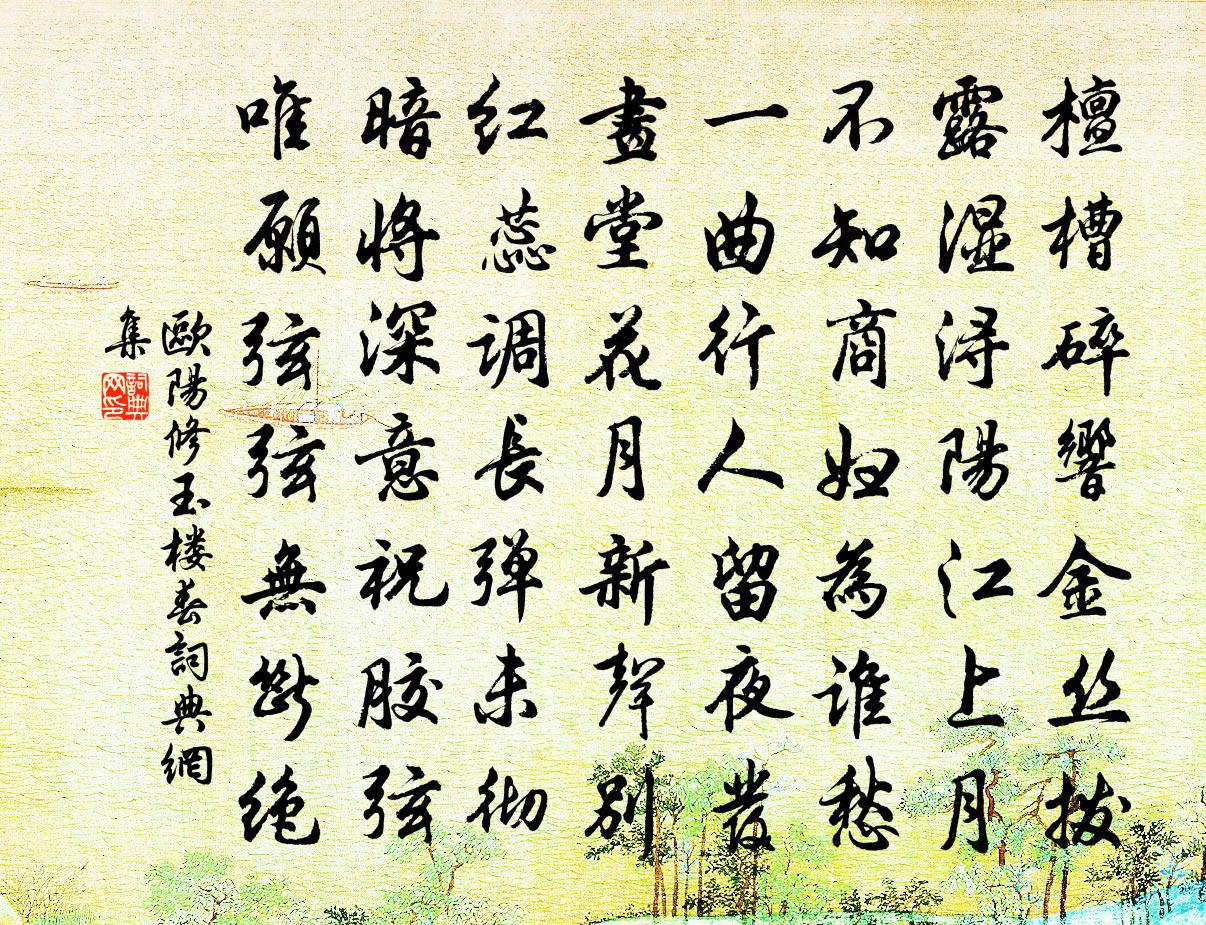 檀槽碎響金丝拨
露湿浔陽江上月
不知商妇為谁愁
一曲行人留夜發
畫堂花月新聲别
红蕊调長弹未彻
暗将深意祝胶弦
唯願弦弦無断绝
歐陽修玉楼春詞典網
集
詞典网印